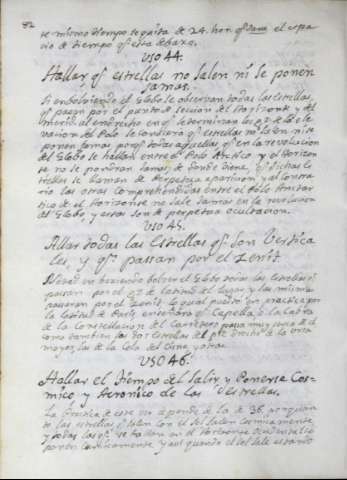 92
se mismo tiempo se quita de 24. hor. q.e dara el espa
cio de tiempo q.e esta debaxo.
USO 44.
Hallar q.e estrellas no salen ni se ponen
jamas.
Si embolviendo el Globo se observan todas las estrellas,
q.e pasen por el punto de seccion del Horizonte y del
Meridiano en q.e terminan los g.s de la Ele
vacion del Polo se tendra q.e estrellas no salen ni se
ponen jamas porq.e todas aquellas q.e en la revolucion
del Globo se hallan entre el Polo Arctico y el Horizon
te no se pondran jamas de donde viene, q.e dichas Es
trellas se llaman de Perpetua aparicion y al contra
rio las otras comprehendidas entre el Polo Antar
tico de el Horizonte no sale jamas en la revolucion
del Globo y estas son de perpetua ocultacion.
USO 45.
Allar todas las Estrellas q.e son Vertica
les, y q.e passan por el Zenit
buscando sobre el Globo todas las estrellas q.e
passan por el g.o de latitud del lugar y las mismas
passaran por el Zenit lo qual puesto en practica por
la latitud de Paris, enseñara q.e Capella, o la Cabra
de la Constelacion de Carretero passa muy cerca de el
como tambien las dos Estrellas del pie derecho de la Ursa
mayor, las de la Cola del Cisne, y otras.
USO 46.
Hallar el Tiempo del Salir, y Ponerse Cos-
mico y Acronico de las Estrellas.
La Practica de este uso depende de la de 36. porque
las estrellas q.e salen con el Sol salen cosmicamente,
y todas las q.e se hallan en el Horizonte Occidental se
ponen cosmicamente, y assi quando el Sol sale estando